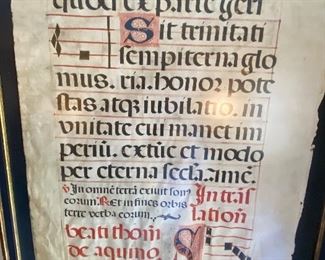 quod ex parte geri
Sit trinitati
sempiterna glo
mus. ria. honor pote
stas atq; iubilatio. in
vnitate cui manet im
perium. extūc et modo
per eterna secla. amē.
℣ In omnē terrā exiuit son⁹
eorum. ℟ Et in fines orbis
terre verba eorum.
In trās
lation
beati thom
de aquino
S